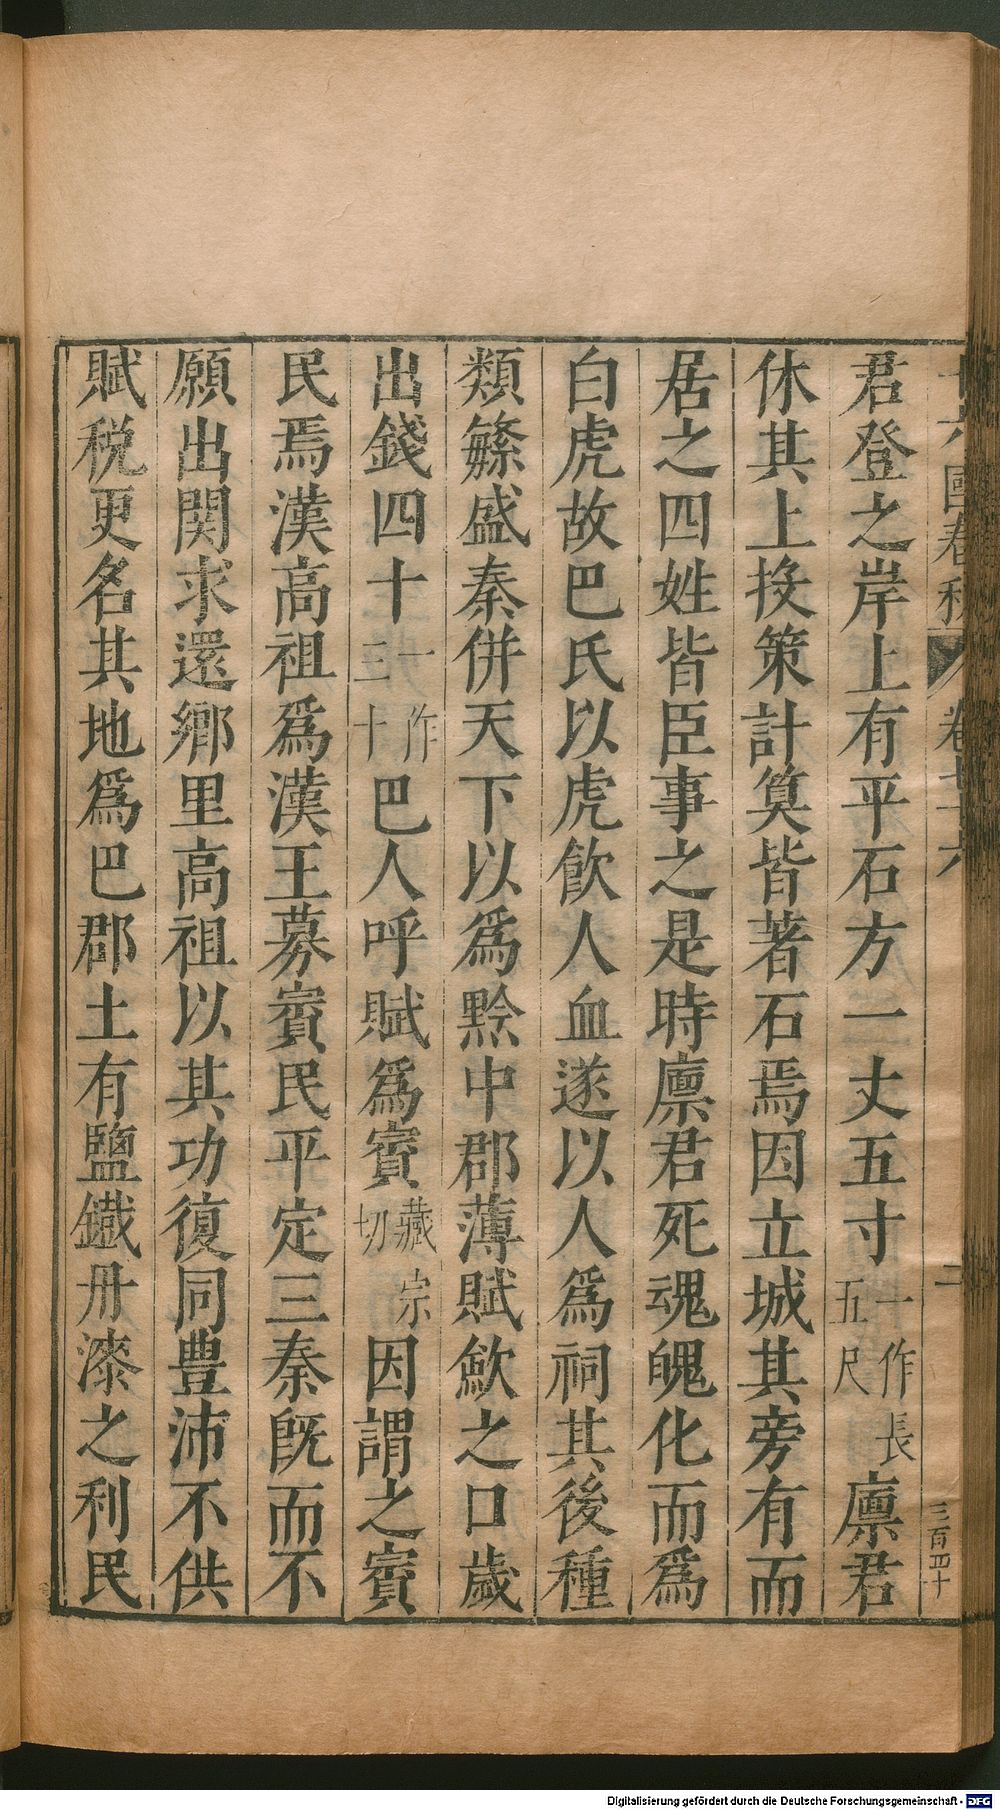 十六國春秋 卷七十六 二 三百四十
君登之岸上有平石方一丈五寸一作長五尺廪君
休其上投策計筭皆著石焉因立城其旁有而
居之四姓皆臣事之是時廪君死魂魄化而爲
白虎故巴氏以虎飲人血遂以人爲祠其後種
類繁盛秦併天下以爲黔中郡薄賦歛之口歲
出錢四十一作三十巴人呼賦爲賨藏宗切因謂之賨
民焉漢高祖爲漢王募賨民平定三秦旣而不
願出関求還鄉里高祖以其功復同豊沛不供
賦稅更名其地爲巴郡土有鹽鐵丹漆之利民
Digitalisierung gefördert durch die Deutsche Forschungsgemeinschaft - DFG